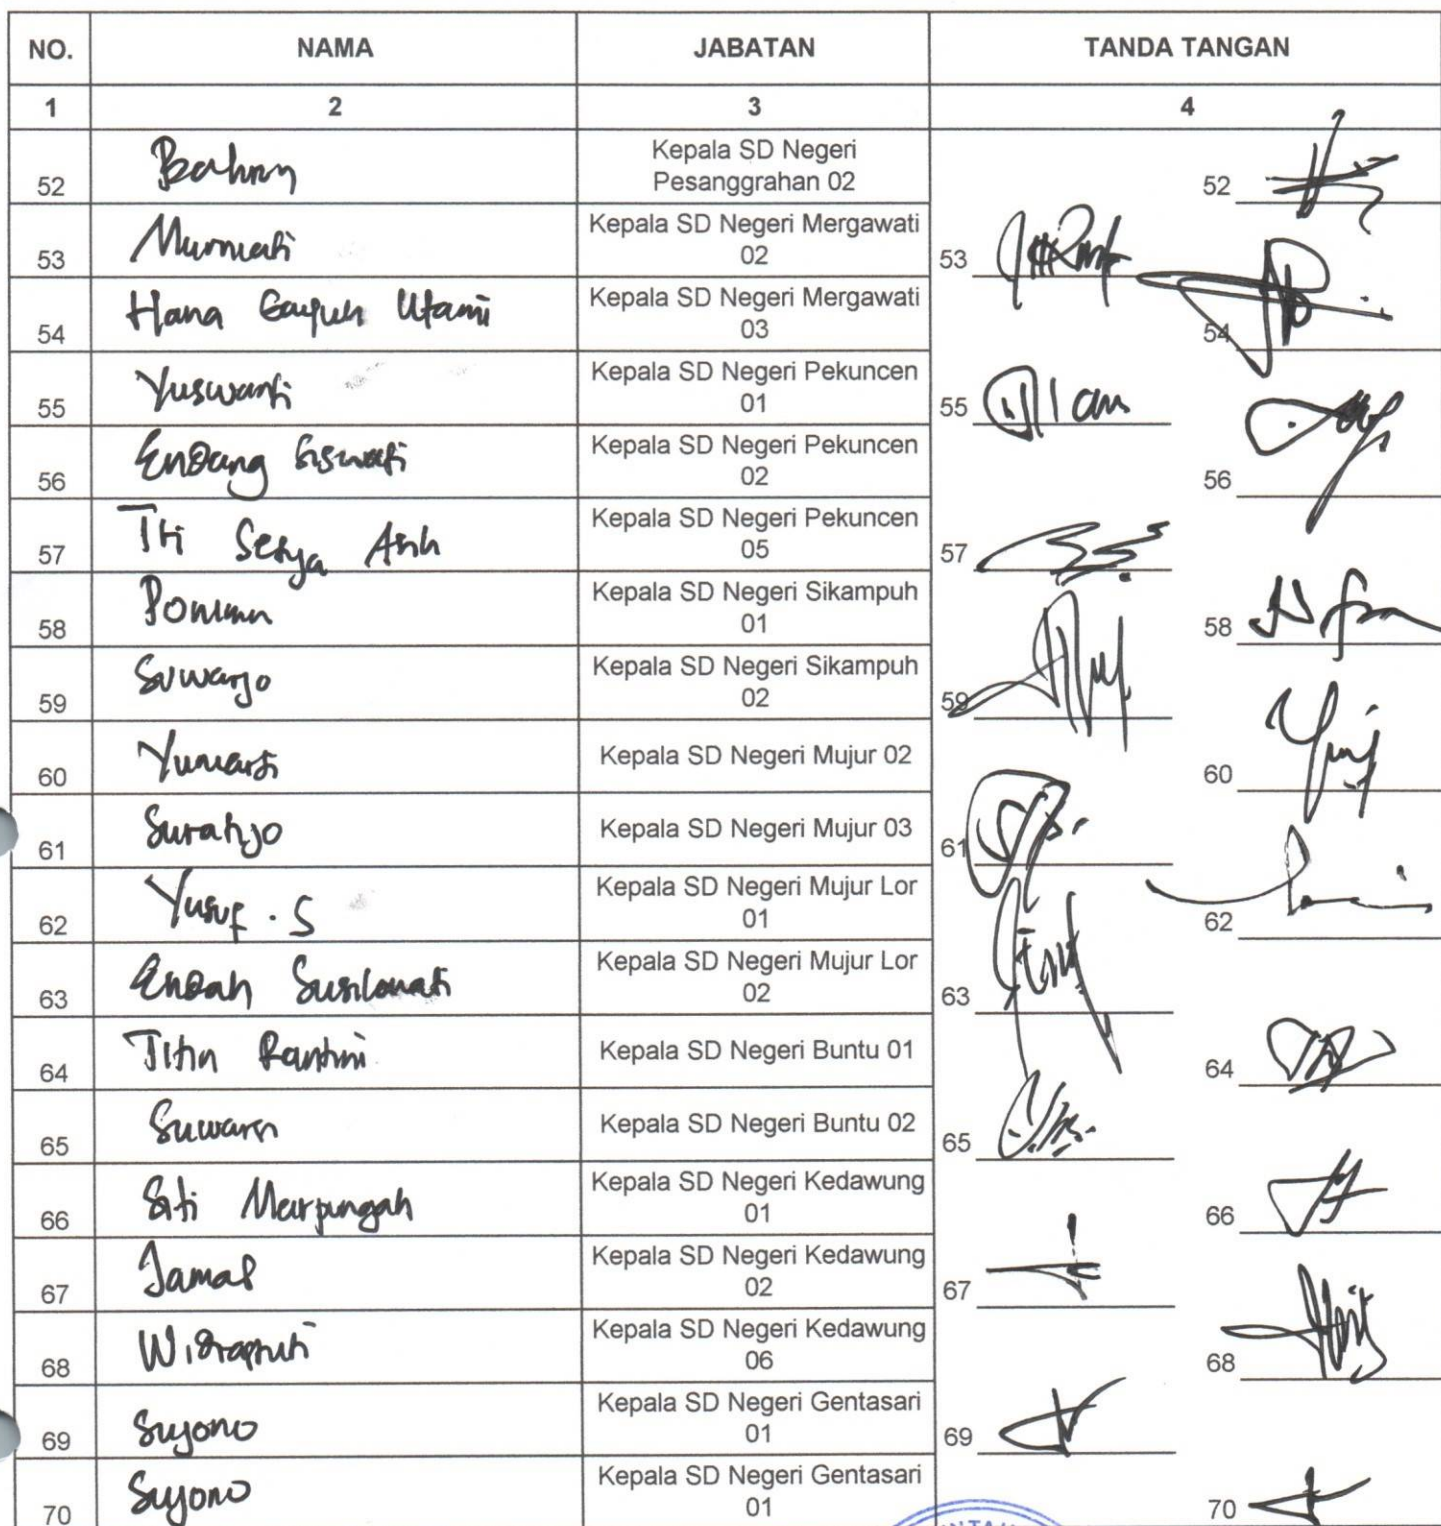 NO. NAMA JABATAN TANDA TANGAN
1 2 3 4
52 Kepala SD Negeri
Pesanggrahan 02 52
53 Murniati Kepala SD Negeri Mergawati
02 53
54 Hana Utami Kepala SD Negeri Mergawati
03 54
55 Yuswanti Kepala SD Negeri Pekuncen
01 55
56 Endang Siswati Kepala SD Negeri Pekuncen
02 56
57 Tri Setya Asih Kepala SD Negeri Pekuncen
05 57
58 Kepala SD Negeri Sikampuh
01 58
59 Suwarjo Kepala SD Negeri Sikampuh
02 59
60 Yuniarti Kepala SD Negeri Mujur 02 60
61 Suratijo Kepala SD Negeri Mujur 03 61
62 Yusuf . S Kepala SD Negeri Mujur Lor
01 62
63 Endah Susilowati Kepala SD Negeri Mujur Lor
02 63
64 Titin Rantini Kepala SD Negeri Buntu 01 64
65 Suwarsi Kepala SD Negeri Buntu 02 65
66 Siti Marpungah Kepala SD Negeri Kedawung
01 66
67 Jamal Kepala SD Negeri Kedawung
02 67
68 Kepala SD Negeri Kedawung
06 68
69 Suyono Kepala SD Negeri Gentasari
01 69
70 Suyono Kepala SD Negeri Gentasari
01 70